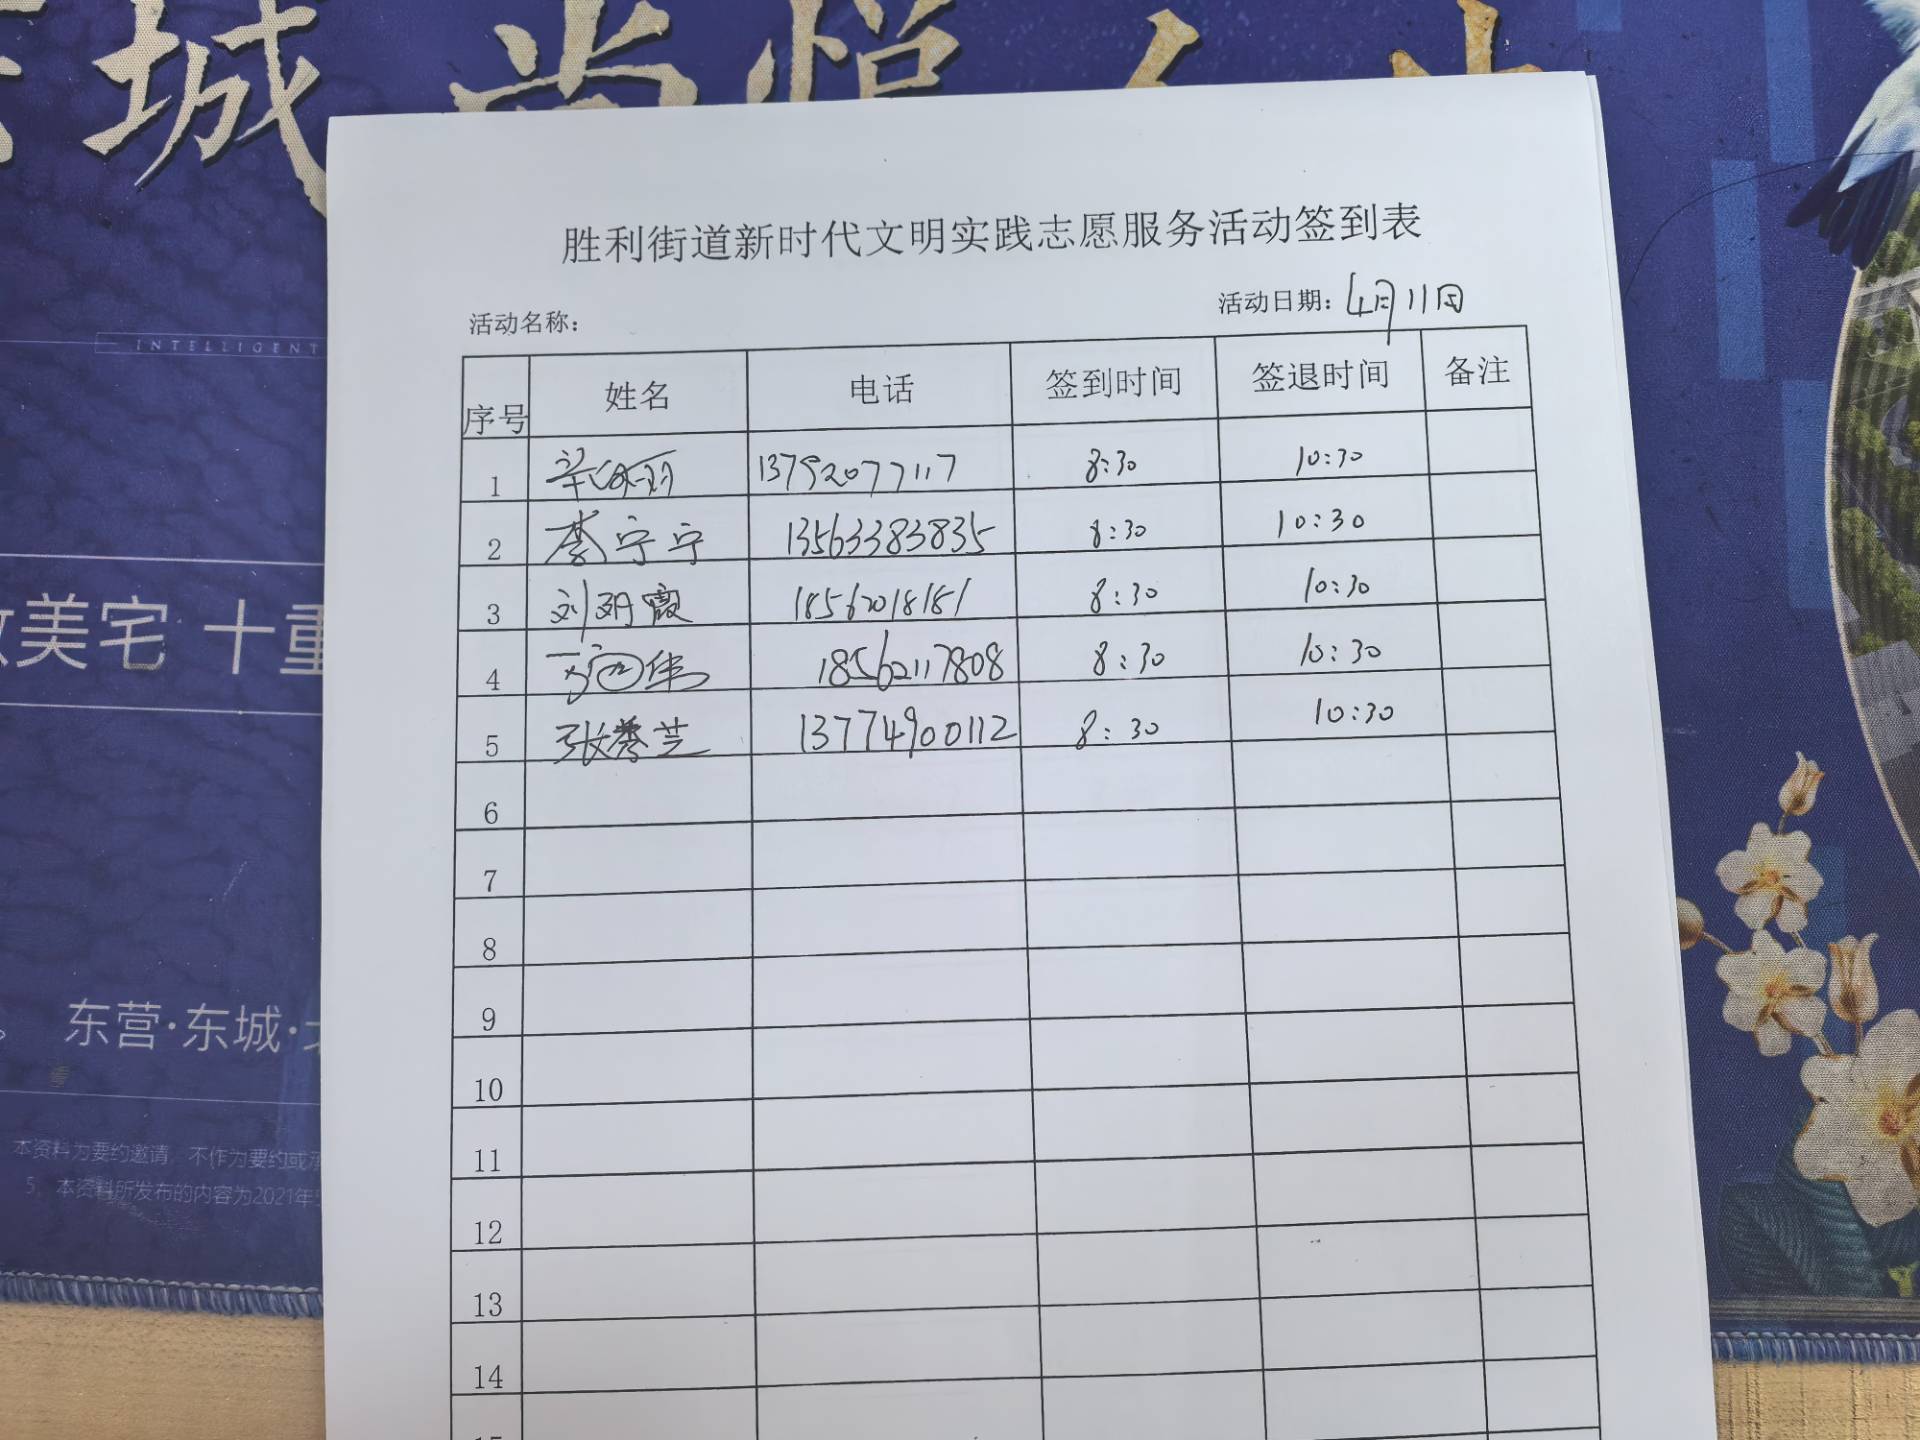 城 尚悦
INTELLIGENT
美宅 十重
东营·东城·
本资料为要约邀请，不作为要约或
5、本资料所发布的内容为2021年
胜利街道新时代文明实践志愿服务活动签到表
活动名称： 活动日期：4月11日
序号 姓名 电话 签到时间 签退时间 备注
1 13792077117 8:30 10:30
2 李宁宁 13563383835 8:30 10:30
3 刘明霞 18562018181 8:30 10:30
4 18562117808 8:30 10:30
5 张秀芝 13774900112 8:30 10:30
6
7
8
9
10
11
12
13
14